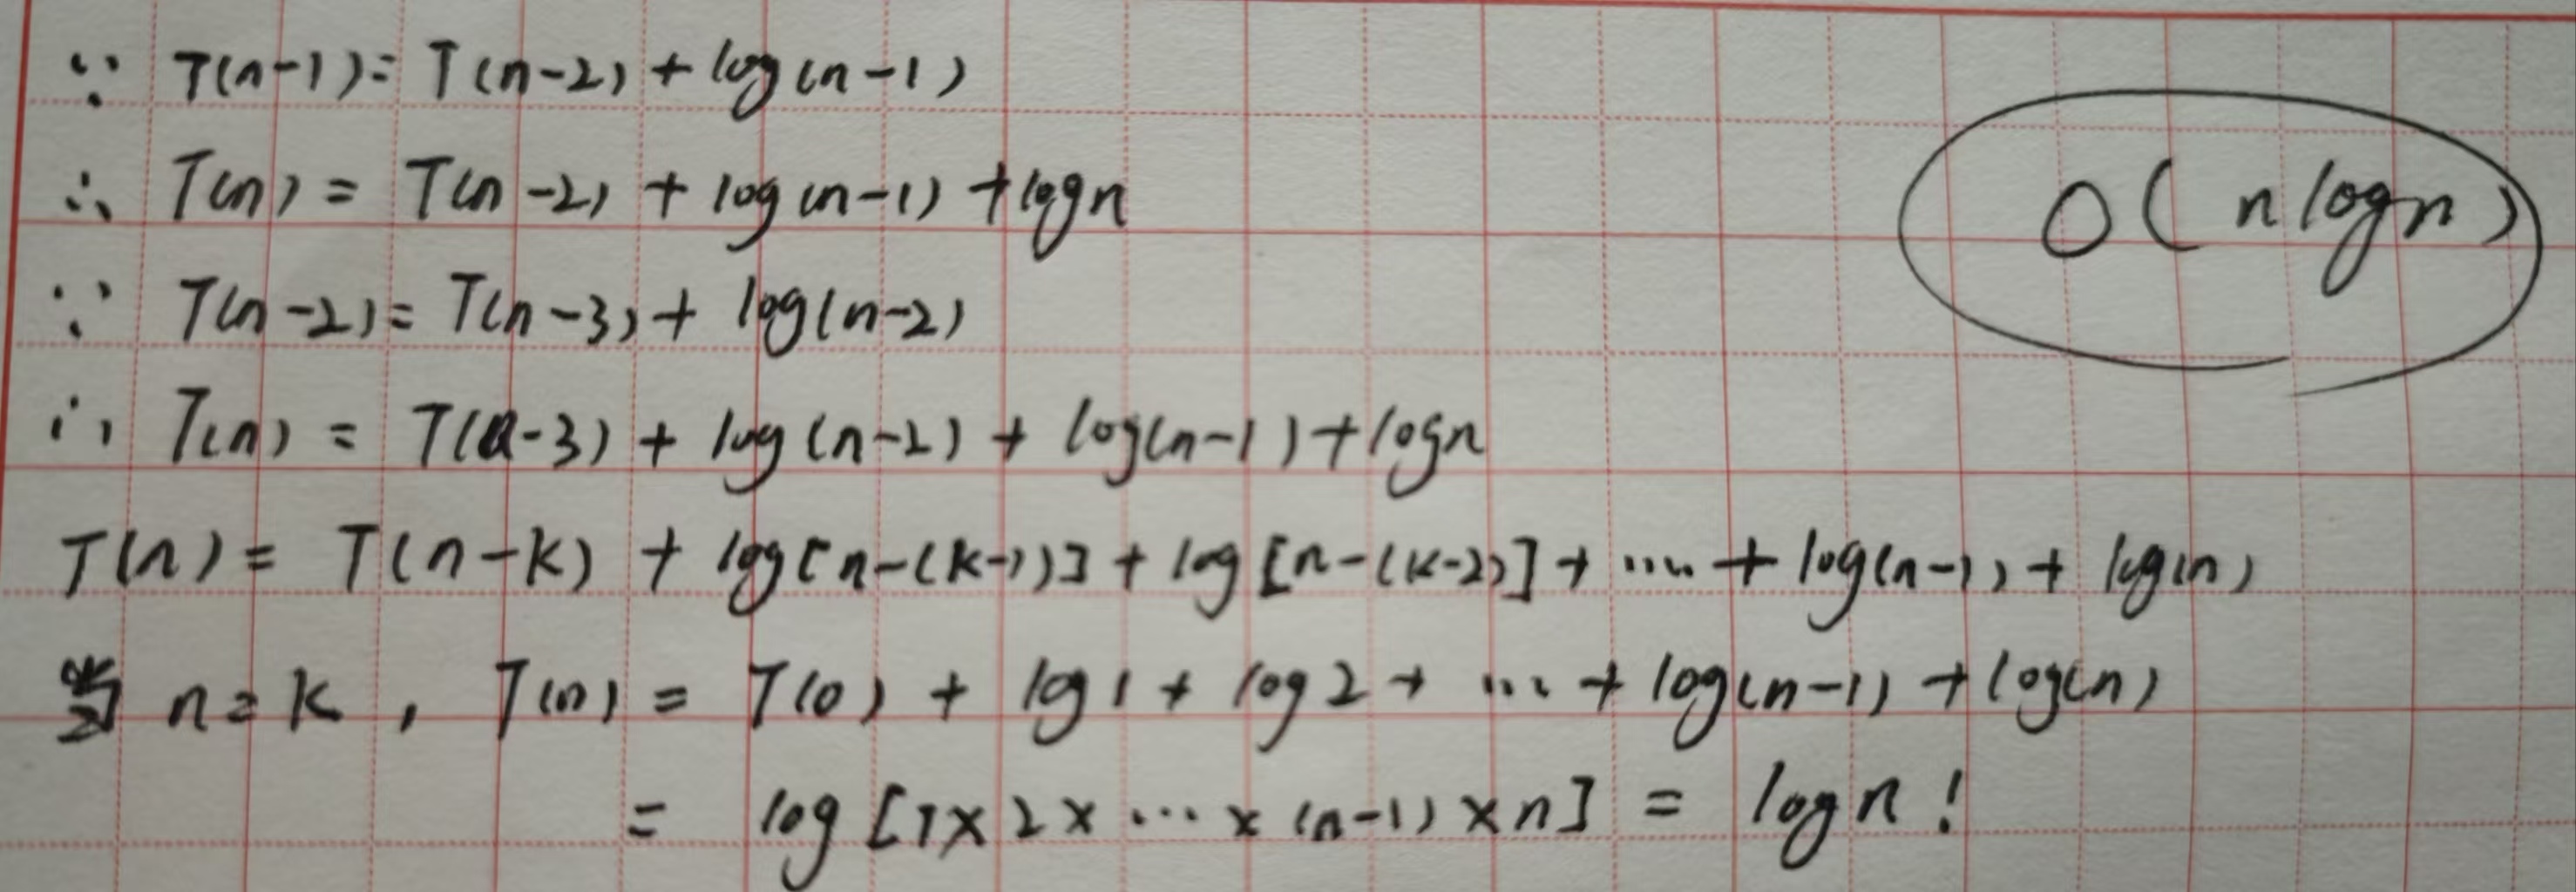 ∵ T(n-1) = T(n-2) + log(n-1)
∴ T(n) = T(n-2) + log(n-1) + logn
O(nlogn)
∵ T(n-2) = T(n-3) + log(n-2)
∴ T(n) = T(n-3) + log(n-2) + log(n-1) + logn
T(n) = T(n-k) + log[n-(k-1)] + log[n-(k-2)] + ..... + log(n-1) + log(n)
当 n=k, T(n) = T(0) + log1 + log2 + ... + log(n-1) + log(n)
= log[1×2×...×(n-1)×n] = logn!